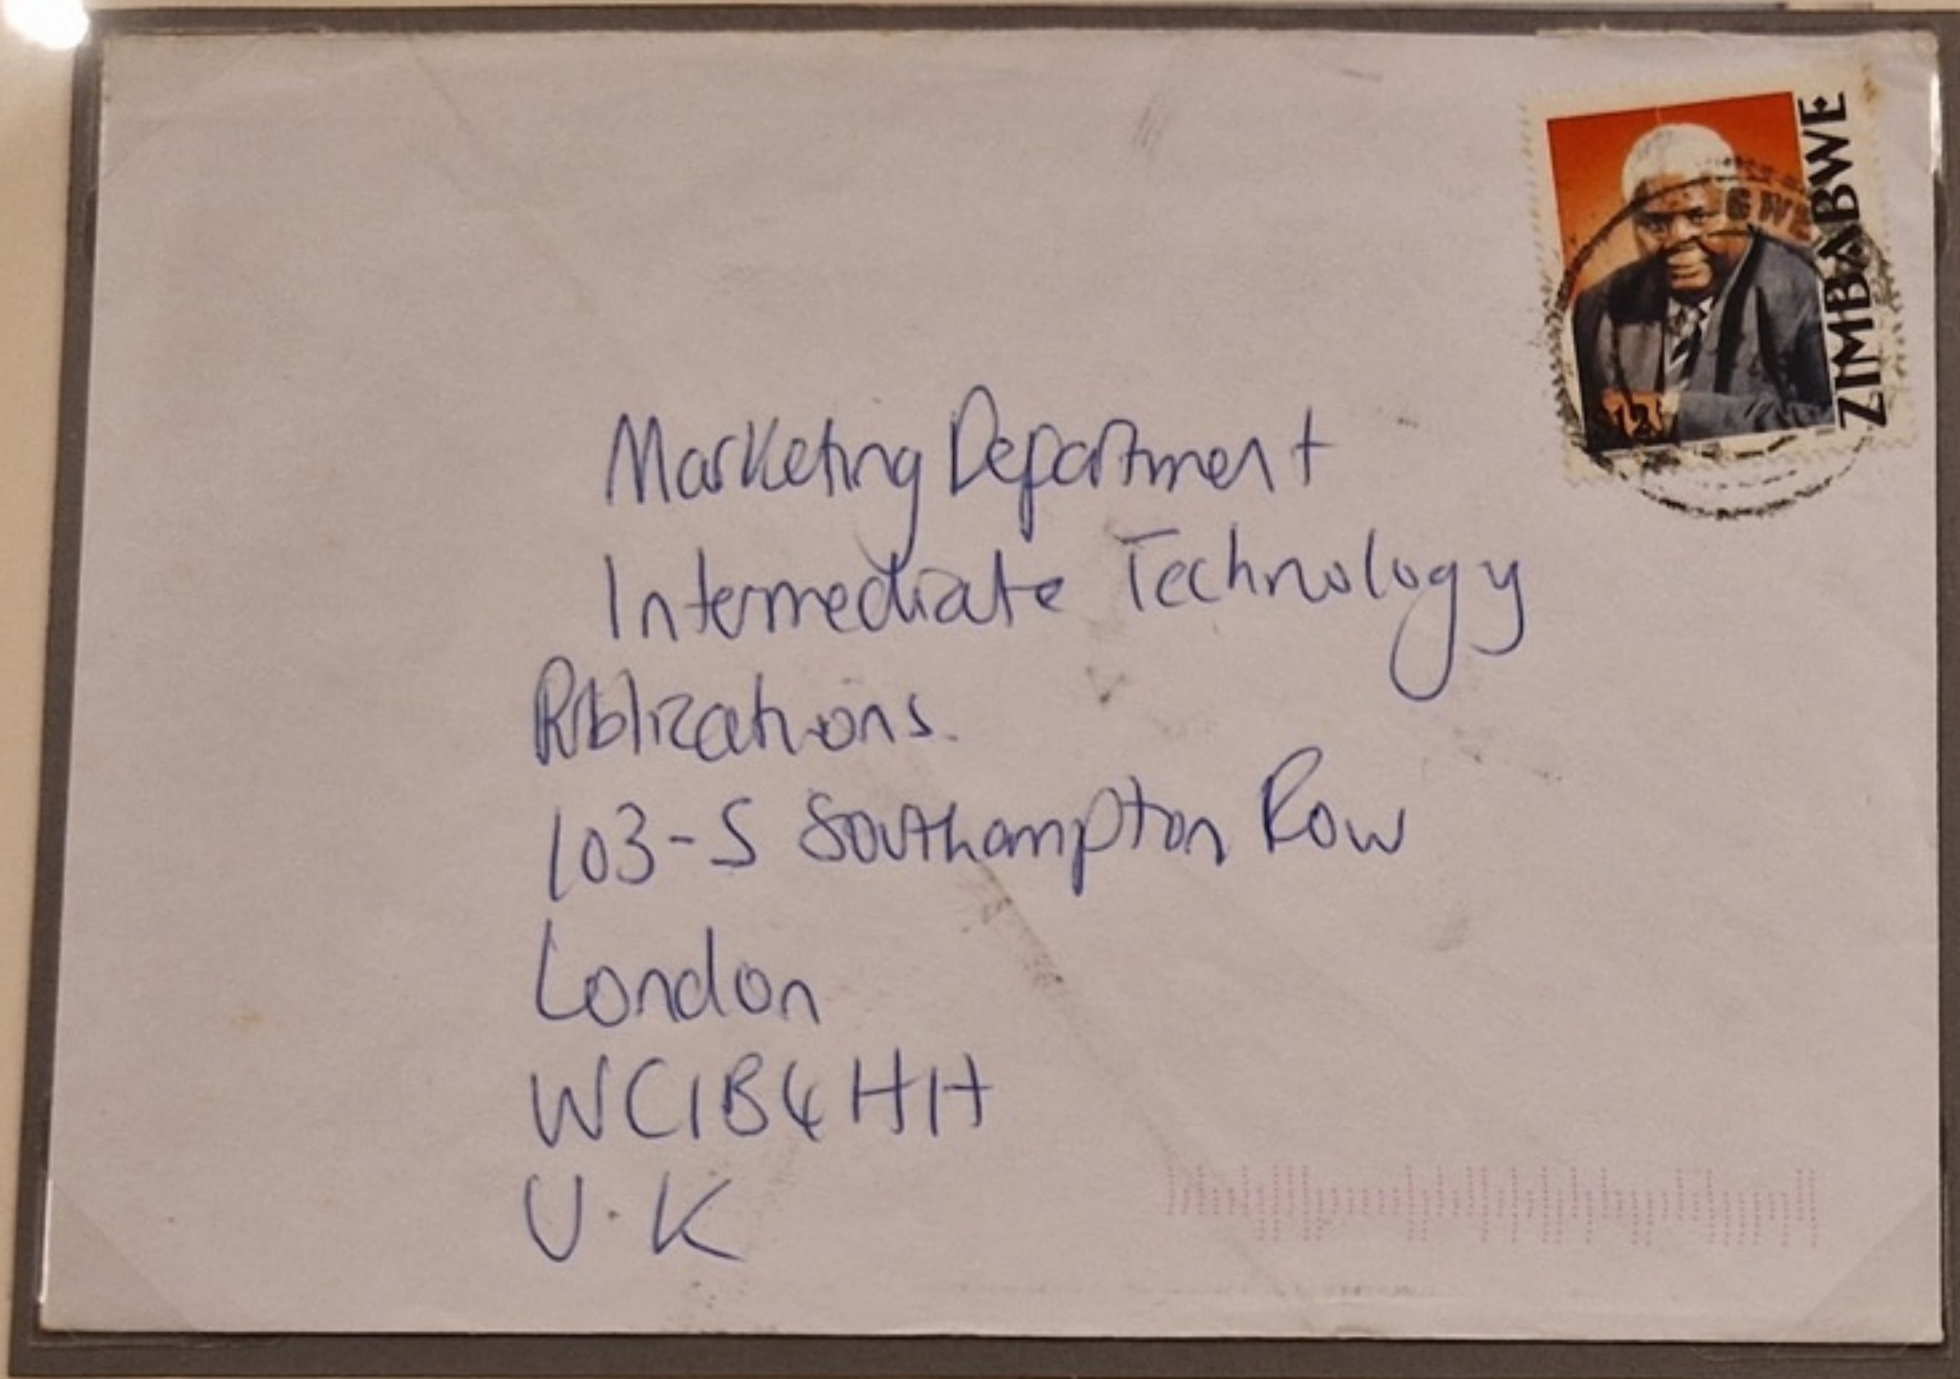 ZIMBABWE
GWE
Marketing Department
Intermediate Technology
Publications.
103-5 Southampton Row
London
WC1B4HH
U.K